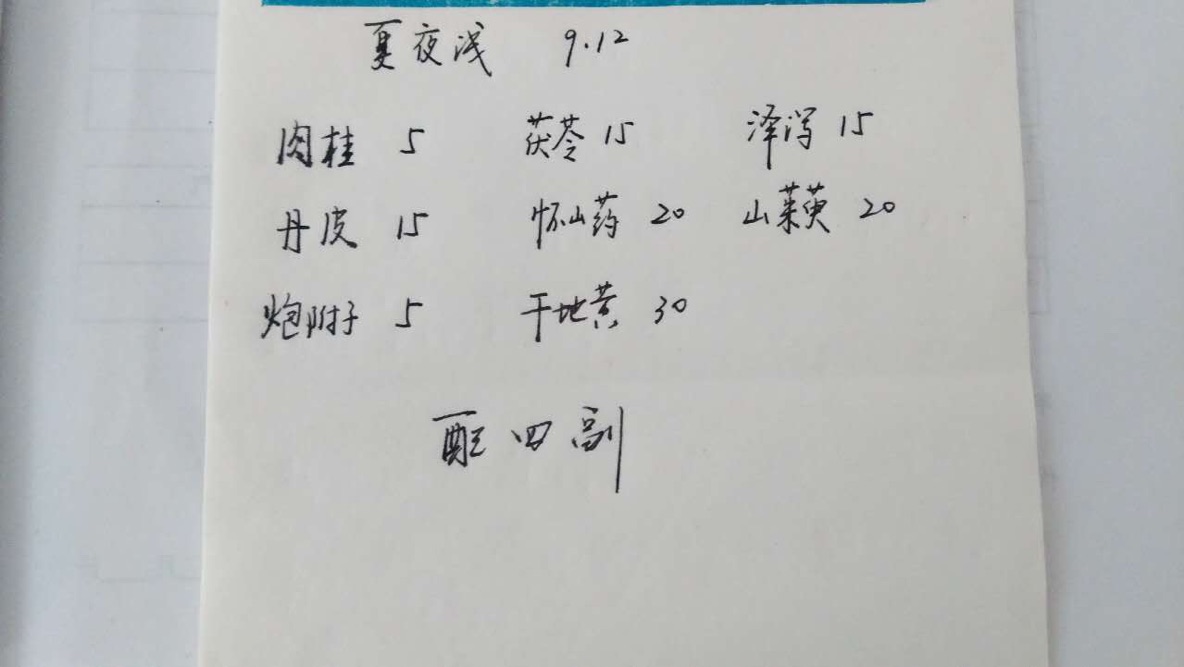 夏夜浅 9.12
肉桂 5 茯苓 15 泽泻 15
丹皮 15 怀山药 20 山茱萸 20
炮附子 5 干地黄 30
配四副